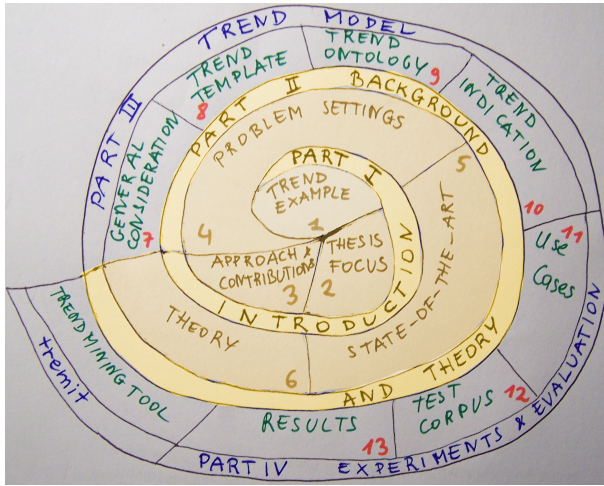 PART I
INTRODUCTION
TREND
EXAMPLE
1
THESIS
FOCUS
2
APPROACH &
CONTRIBUTIONS
3
PART II
BACKGROUND
AND THEORY
PROBLEM SETTINGS
4
STATE-OF-THE-ART
5
THEORY
6
PART III
TREND MODEL
GENERAL
CONSIDERATION
7
TREND
TEMPLATE
8
TREND
ONTOLOGY
9
TREND
INDICATION
10
PART IV
EXPERIMENTS & EVALUATION
11
USE
CASES
TEST
CORPUS
12
RESULTS
13
TREND MINING TOOL
tremit